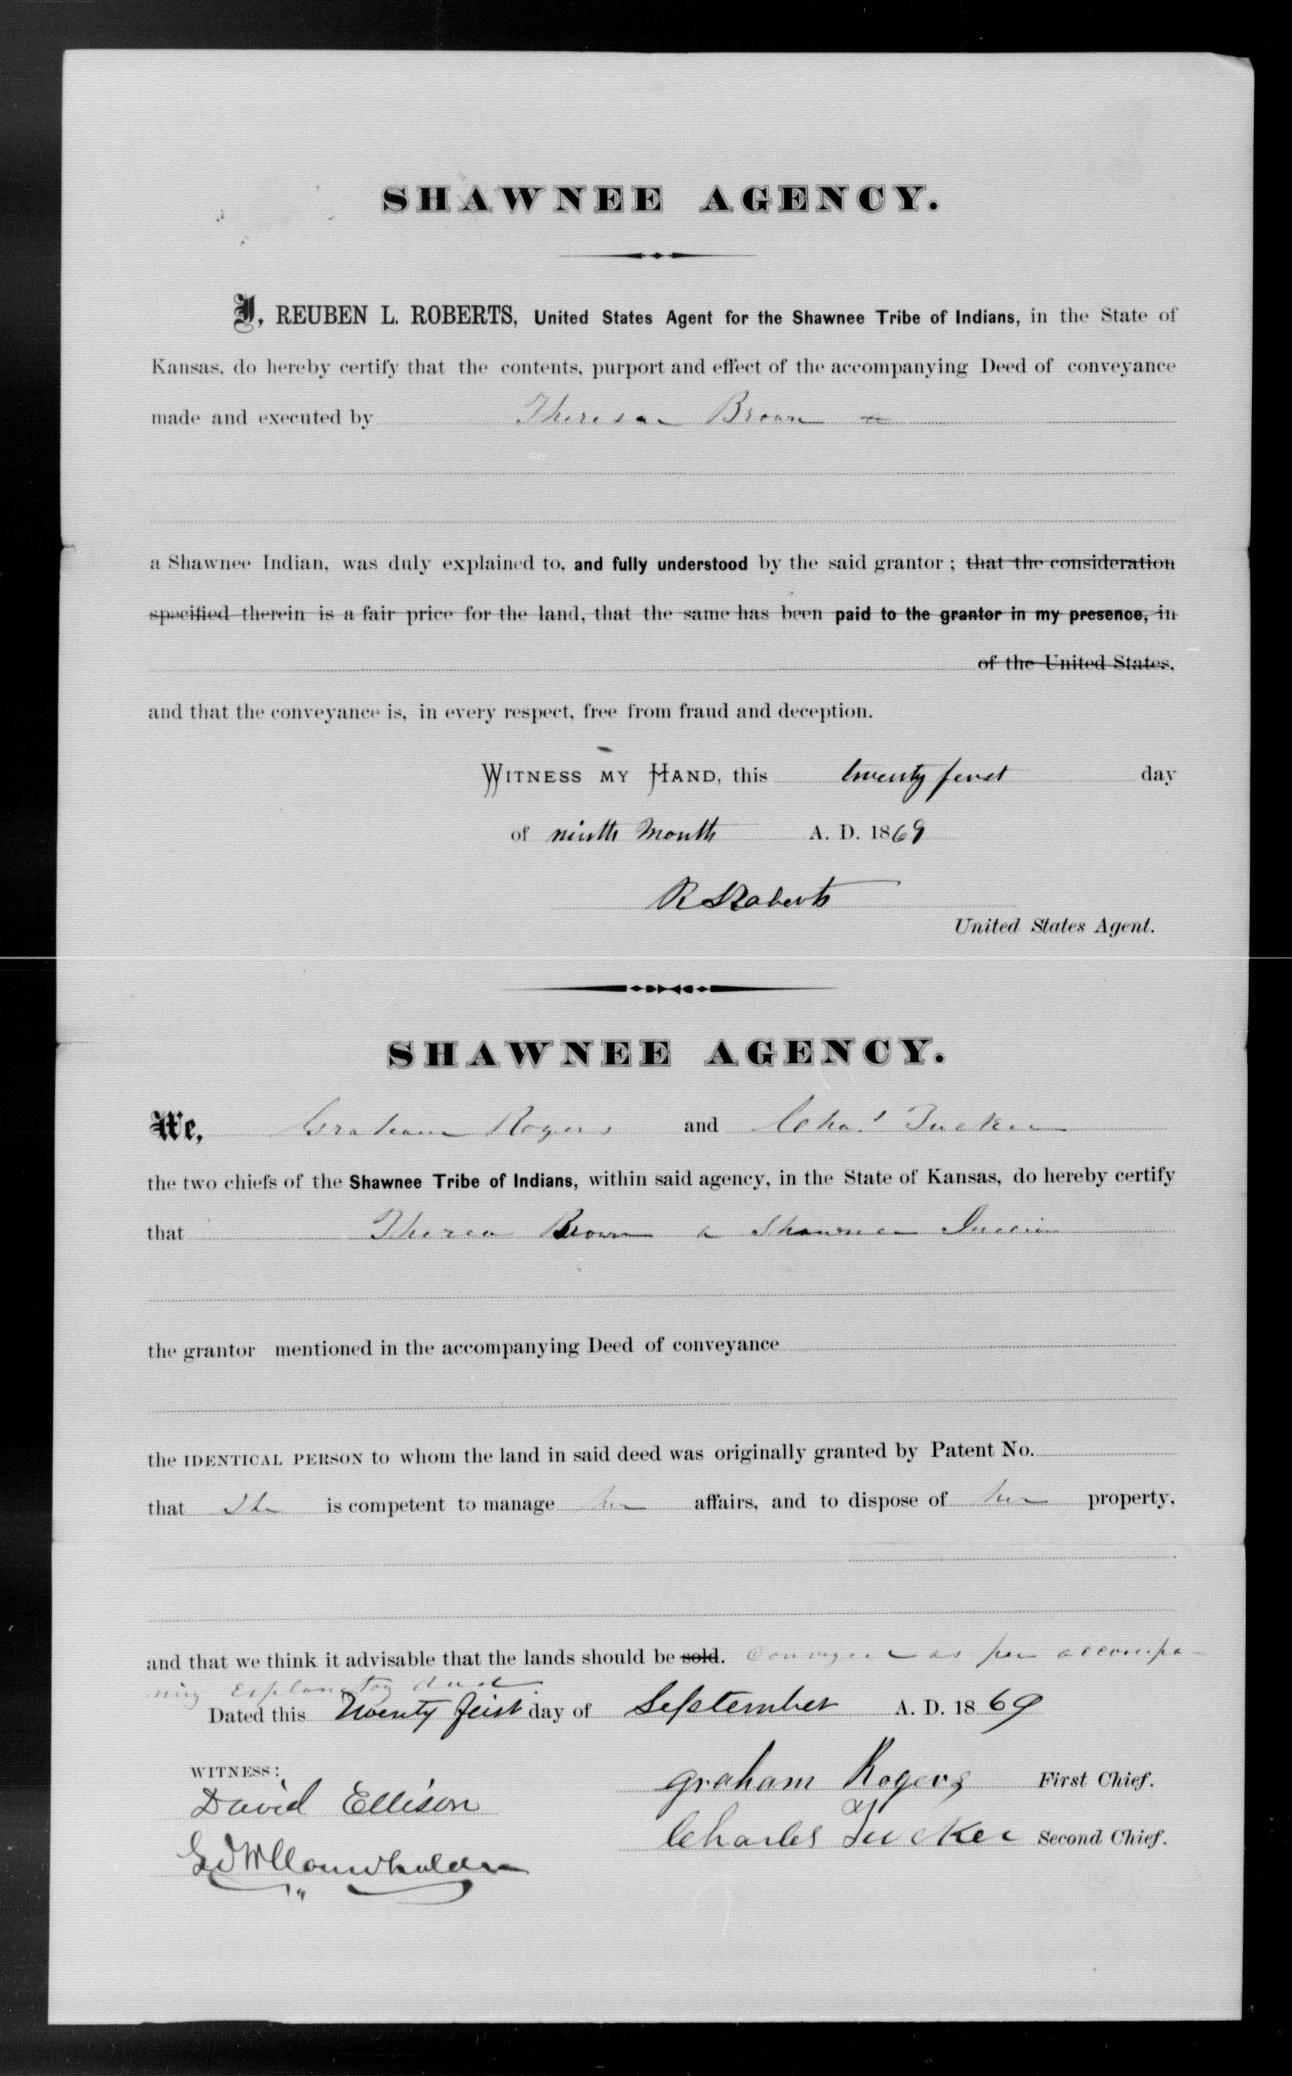 SHAWNEE AGENCY.
I, REUBEN L. ROBERTS, United States Agent for the Shawnee Tribe of Indians, in the State of
Kansas, do hereby certify that the contents, purport and effect of the accompanying Deed of conveyance
made and executed by Theresa Brown
a Shawnee Indian, was duly explained to, and fully understood by the said grantor; that the consideration
specified therein is a fair price for the land, that the same has been paid to the grantor in my presence, in
of the United States,
and that the conveyance is, in every respect, free from fraud and deception.
WITNESS MY HAND, this twenty first day
of ninth Month A. D. 1869
R L Roberts
United States Agent.
SHAWNEE AGENCY.
We, Graham Rogers and Chas Tucker
the two chiefs of the Shawnee Tribe of Indians, within said agency, in the State of Kansas, do hereby certify
that Brown a Shawnee Indian
the grantor mentioned in the accompanying Deed of conveyance
the IDENTICAL PERSON to whom the land in said deed was originally granted by Patent No.
that She is competent to manage her affairs, and to dispose of her property,
and that we think it advisable that the lands should be sold. Conveyed as per accompa-
nying Explanatory deed
Dated this Twenty first day of September A. D. 1869
WITNESS:
David Ellison
Graham Rogers First Chief.
Charles Tucker Second Chief.